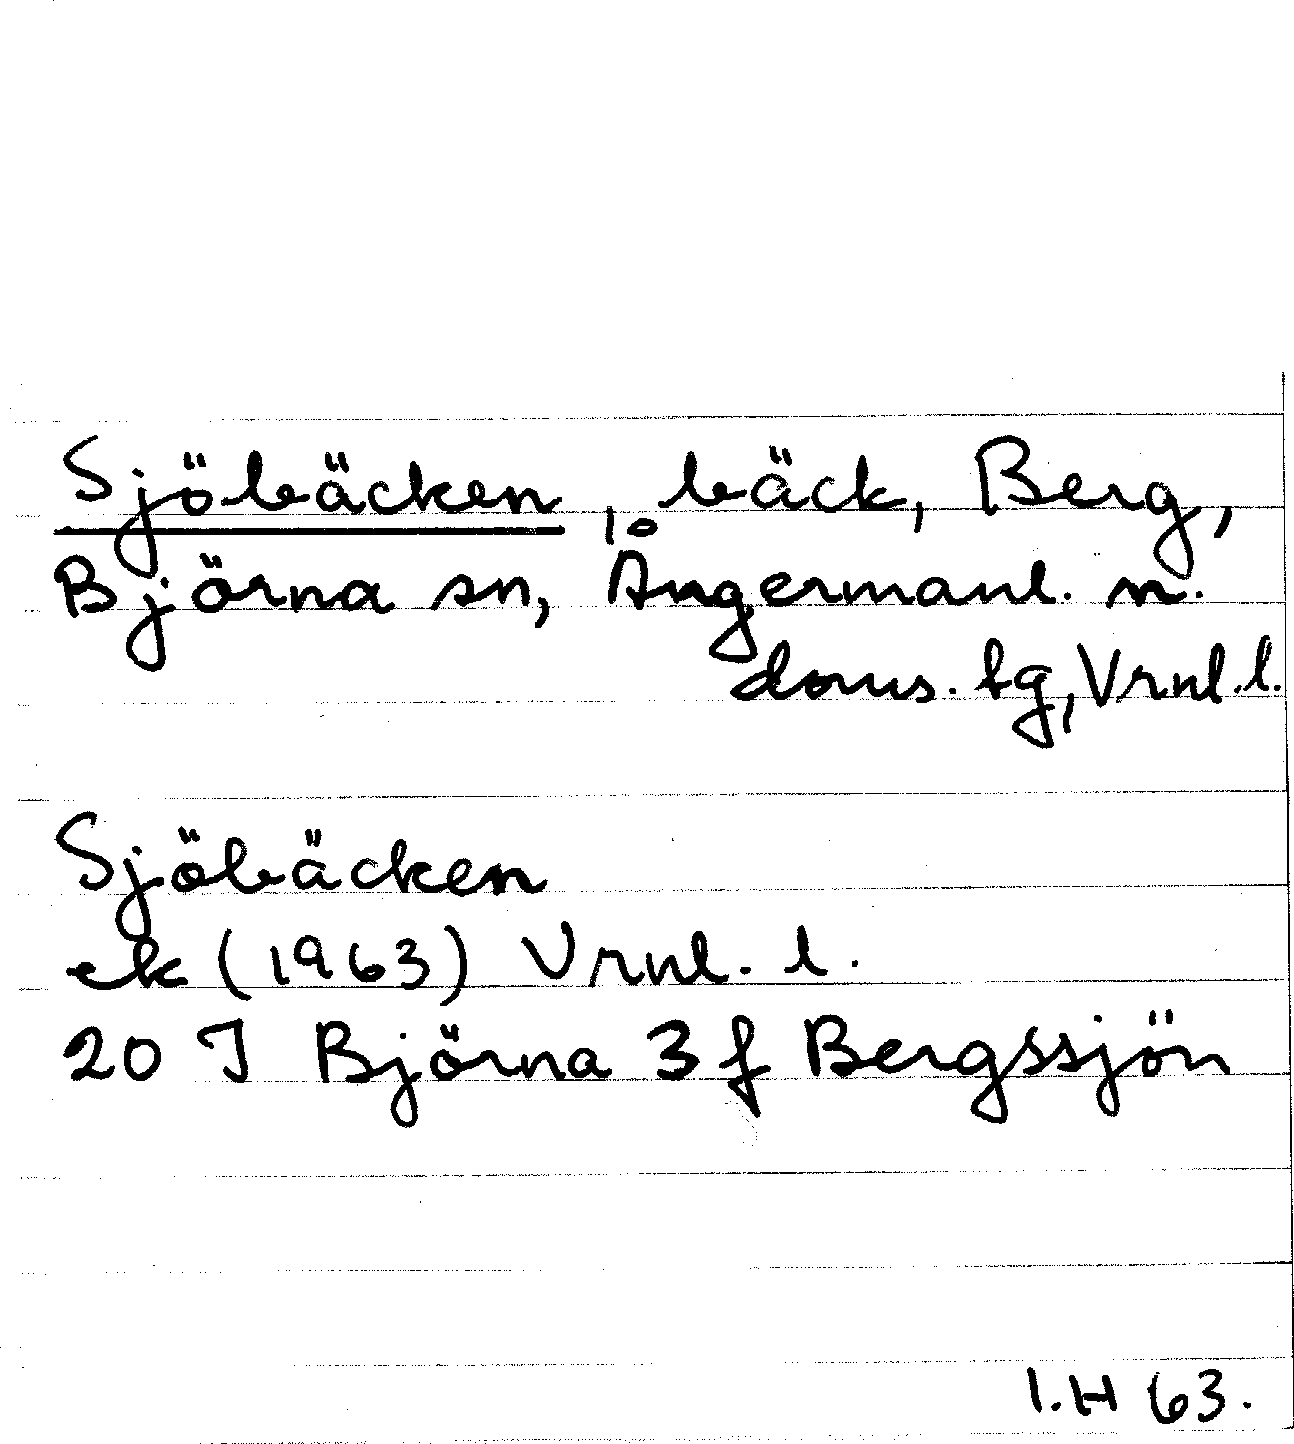 Sjöbäcken, bäck, Berg,
Björna sn, Ångermanl. n.
doms. tg, Vrnl. l.
Sjöbäcken
ek (1963) Vrnl. l.
20 J Björna 3 f Bergssjön
I.H 63.